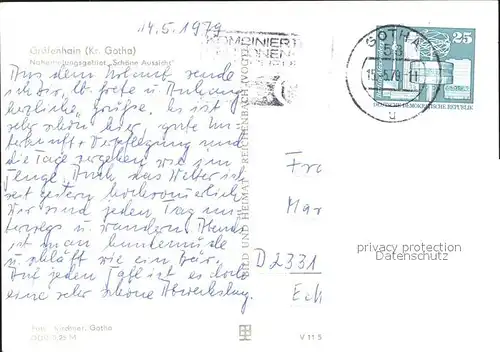 14.5.1979
Gräfenhain (Kr. Gotha)
Naherholungsgebiet „Schöne Aussicht"
KOMBINIERT
GOTHA
53
15.-5.79-11
u
25
DEUTSCHE DEMOKRATISCHE REPUBLIK
Aus dem Urlaub sende
ich herzliche Grüße. Es ist
sehr schön hier, gute Un-
terkunft u. Verpflegung und
die Tage vergehen wie im
Fluge. Auch das Wetter ist
seit gestern hochsommerlich
Wir sind jeden Tag un-
terwegs u. wandern. Abends
ist man hundemüde
u. schläft wie ein Bär.
Auf jeden Fall ist es doch
eine sehr schöne Abwechslung.
BILD UND HEIMAT REICHENBACH (VOGTL)
Fra
Mar
D 2331
Eck
privacy protection
Datenschutz
Foto: Kirchner, Gotha
V 11 5